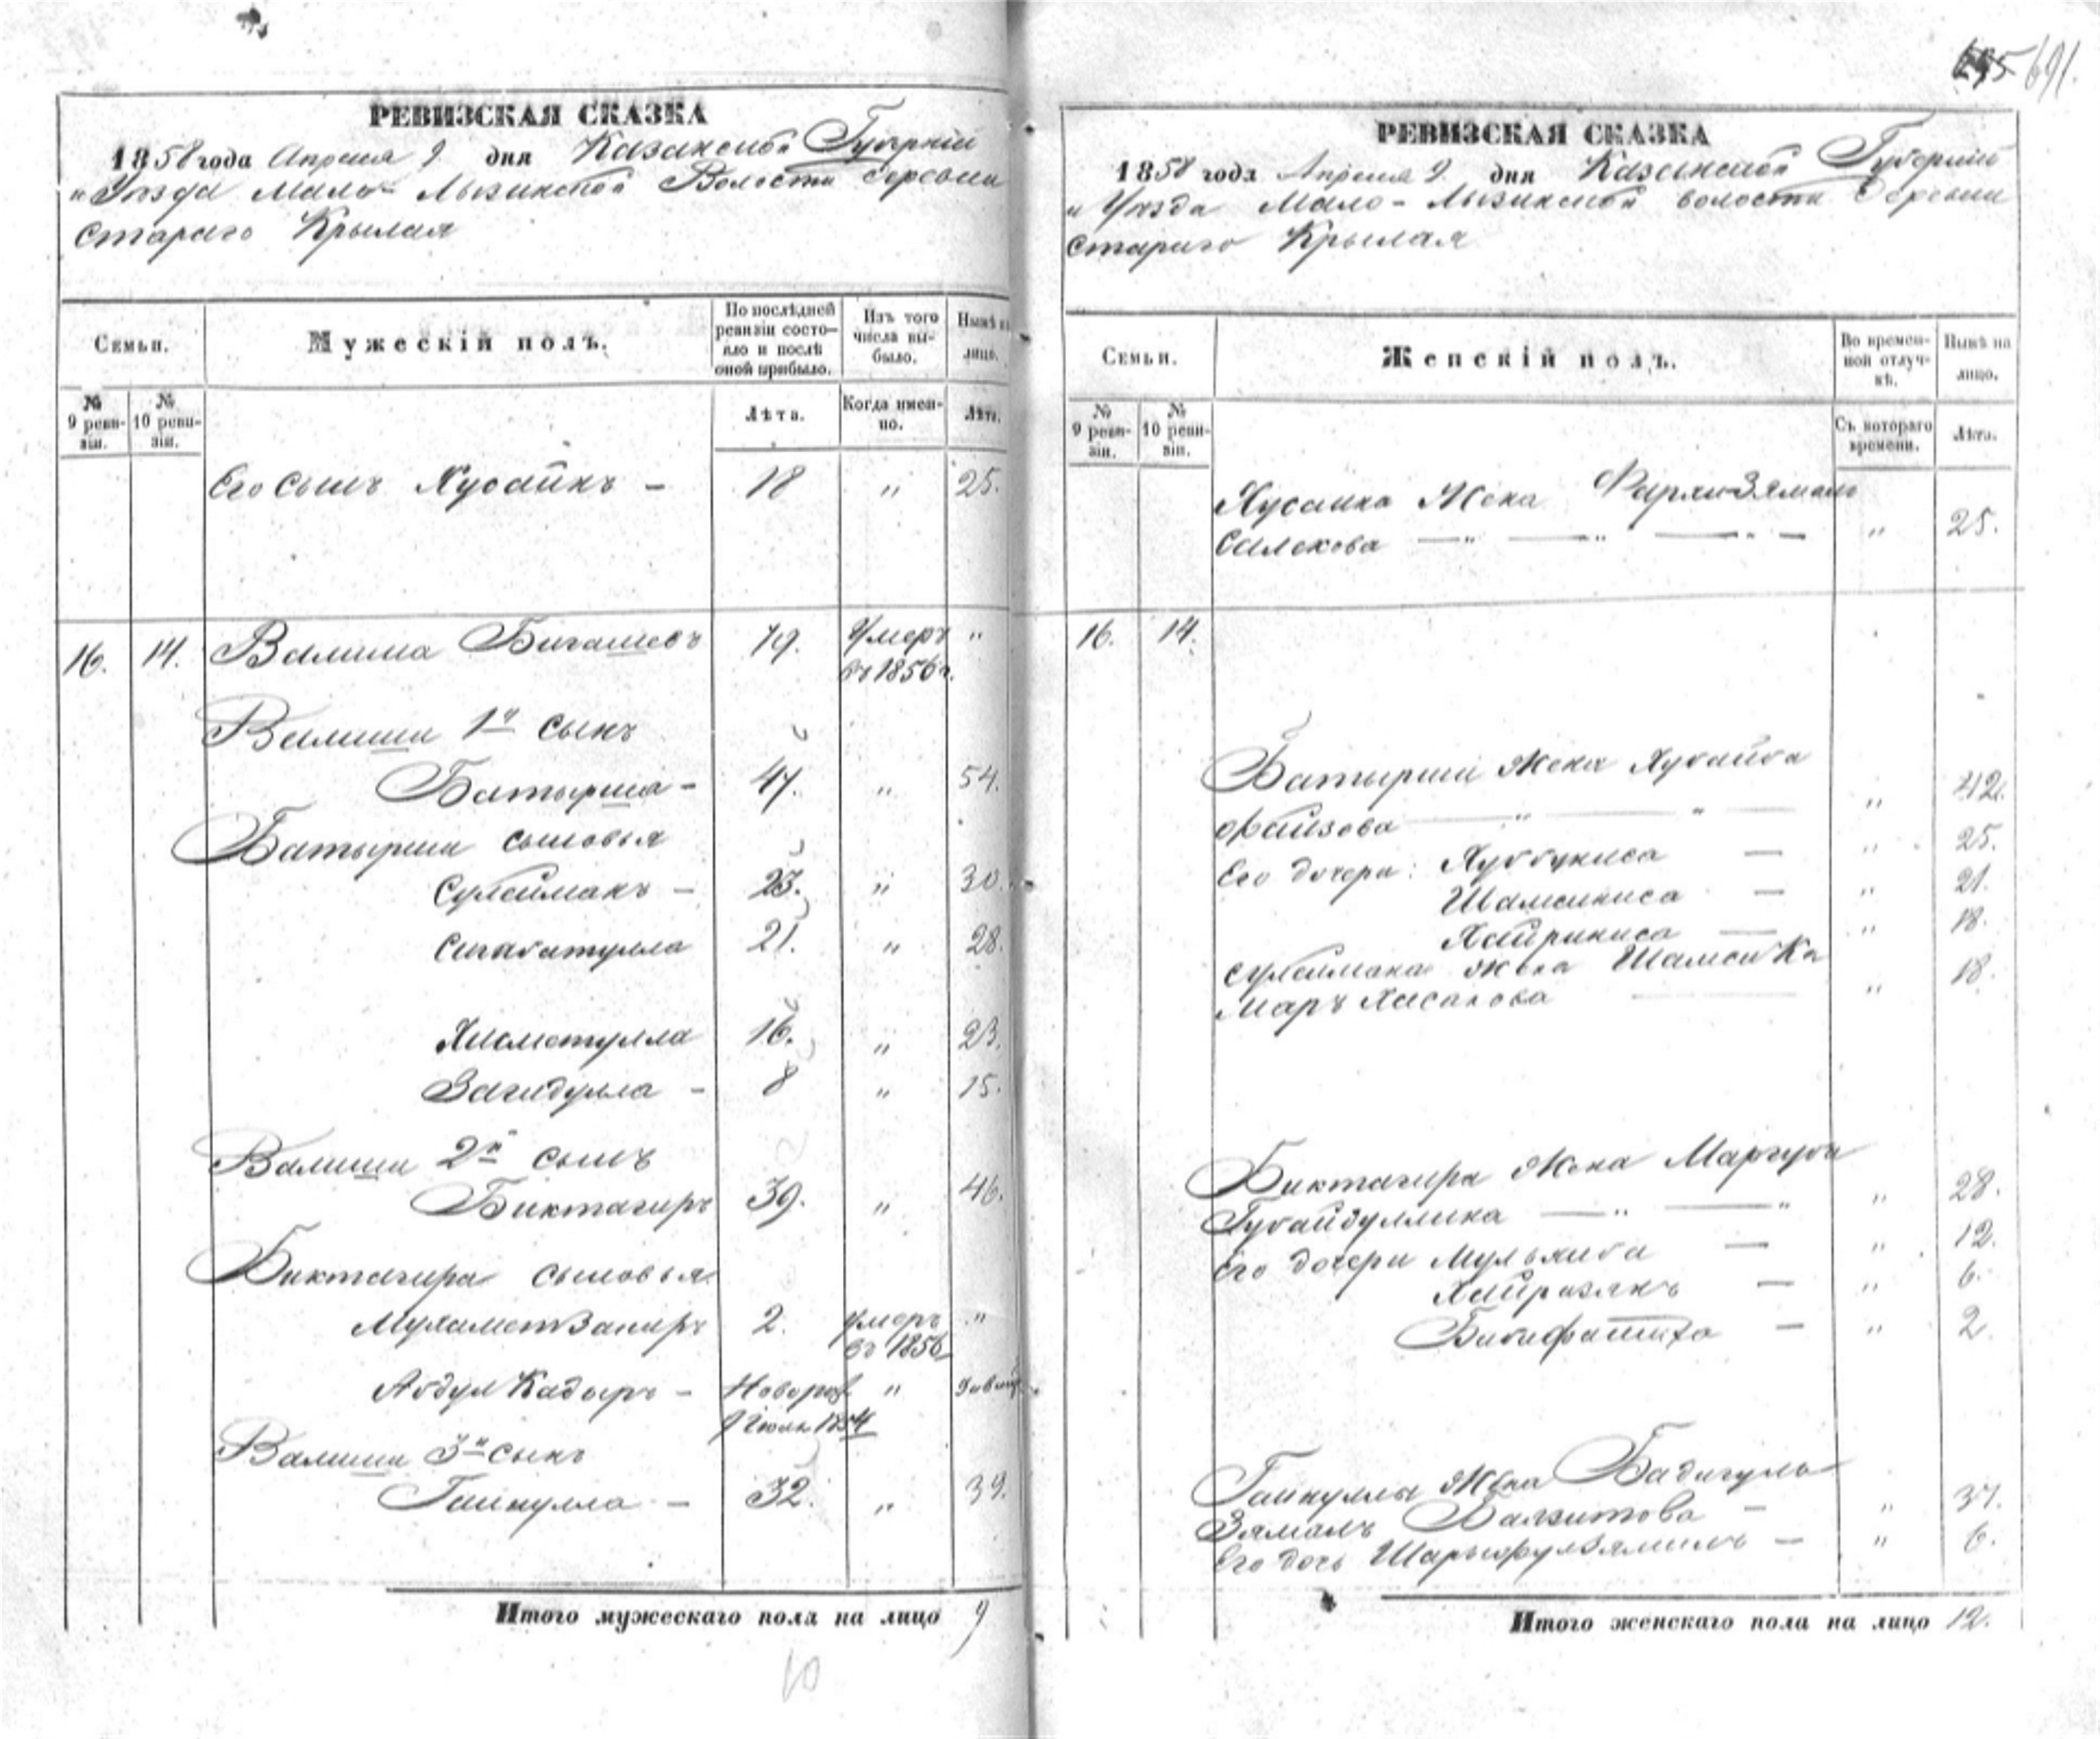 РЕВИЗСКАЯ СКАЗКА
1858 года Апреля 9 дня Казанской Губерніи
и Уезда Мало-Лызинской Волости деревни
Стараго Крылая
Семьи.
Мужескій полъ.
По послѣдней ревизіи состо-
яло и послѣ оной прибыло.
Изъ того числа вы-
было.
Нынѣ на лицо.
№ 9 реви-
зіи.
№ 10 реви-
зіи.
Лѣта.
Когда имен-
но.
Лѣта.
Его сынъ Хусаинъ — 18 " 25.
16. 14. Валиша Бигашевъ 79. Умеръ "
въ 1856 г.
Валиши 1й сынъ
Батырша - 47. " 54.
Батырши сыновья
Сулейманъ - 23. " 30.
Сигабатулла 21. " 28.
Хисметулла 16. " 23.
Загидулла - 8 " 15.
Валиши 2й сынъ
Биктагиръ 39. " 46.
Биктагира сыновья
МухаметЗакиръ 2. умеръ "
въ 1856
Абдул Кадыръ - Новорож "
1854
Валиши 3й сынъ
Гайнулла - 32. " 39.
Итого мужескаго пола на лицо 9
10
691.
РЕВИЗСКАЯ СКАЗКА
1858 года Апреля 9 дня Казанской Губерніи
и Уезда Мало-Лызинской волости деревни
Стараго Крылая
Семьи.
Женскій полъ.
Во времен-
ной отлуч-
кѣ.
Нынѣ на лицо.
№ 9 реви-
зіи.
№ 10 реви-
зіи.
Съ котораго времени.
Лѣта.
Хусаина Жена
Салекова — " — " — " — " 25.
16. 14.
Батырши Жена Хубайба
Файзова — " — " — " 42.
Его дочери: Хуббуниса — " 25.
Шамсиниса — " 21.
Хайриниса — " 18.
Сулеймана жена Шамси Ка
маръ Хасанова — " 18.
Биктагира Жена Маргуба
Губайдуллина — " — " " 28.
Его дочери — " 12.
Хайразянъ — " 6.
Бибифатиха — " 2
Гайнуллы Жена Бадигуль
Зямалъ Баязитова — " 37.
Его дочь ШарыфулЗямилъ — " 6.
Итого женскаго пола на лицо 12.